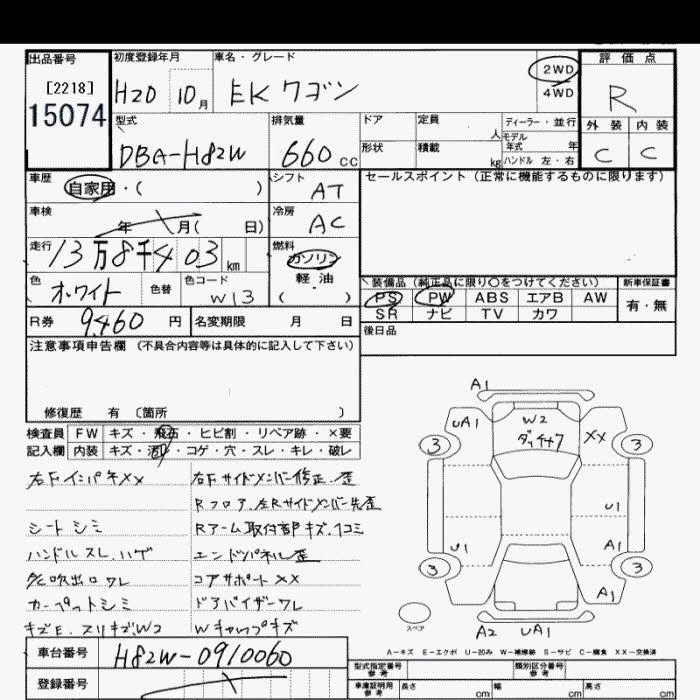 出品番号
[2218]
15074
初度登録年月
H20 10月
車名・グレード
EK ワゴン
2WD
4WD
評価点
R
外装 内装
C C
型式
DBA-H82W
排気量
660 cc
ドア
定員 人
形状
積載 kg
ディーラー・並行
モデル年式 年
ハンドル 左・右
車歴
自家用・( )
シフト
AT
セールスポイント (正常に機能するものに限ります)
車検
年 月( 日)
冷房
AC
走行
13万8千403 km
燃料
ガソリン
軽油
( )
色
ホワイト
色替
色コード
W13
装備品 (純正品に限り〇をつけてください)
新車保証書
PS PW ABS エアB AW
有・無
SR ナビ TV カワ
R券
9,460 円
名変期限 月 日
後日品
注意事項申告欄 (不具合内容等は具体的に記入して下さい)
修復歴 有 〔箇所 〕
検査員 FW キズ・飛石・ヒビ割・リペア跡・×要
記入欄 内装 キズ・汚れ・コゲ・穴・スレ・キレ・破レ
右FインパキXX
右Fサイドメンバー修正.歪
Rフロア.左Rサイドメンバー先歪
シートシミ
Rアーム取付部キズ.凹コミ
ハンドルスレ.ハゲ
エンドパネル歪
吹出口ワレ
コアサポートXX
カーペットシミ
ドアバイザーワレ
キズE.スリキズ.W2
Wキャップキズ
A1
UA1
W2
XX
3
3
U1
U1
A1
3
3
A1
スペア
A2 UA1
A-キズ E-エクボ U-凹み W-補修跡 S-サビ C-腐食 XX-交換済
車台番号
H82W-0910060
登録番号
型式指定番号 参考
類別区分番号 参考
車庫証明用 参考
長さ cm
幅 cm
高さ cm